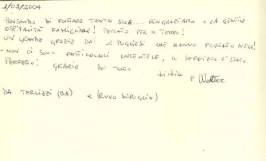 1/03/2004
PENSANDO DI PORTARE TANTO SOLE... RINGRAZIAMO LA GENTILE
OSPITALITÀ FAMIGLIARE! PECCATO PER IL TEMPO!
UN GRANDE GRAZIE DAI PUGLIESI CHE HANNO PORTATO NEVE!
- NON CI SONO PARTICOLARI LAMENTELE, IL SERVIZIO È STATO
PERFETTO! GRAZIE DI TUTTO
Walter
DA TERLIZZI (BA)